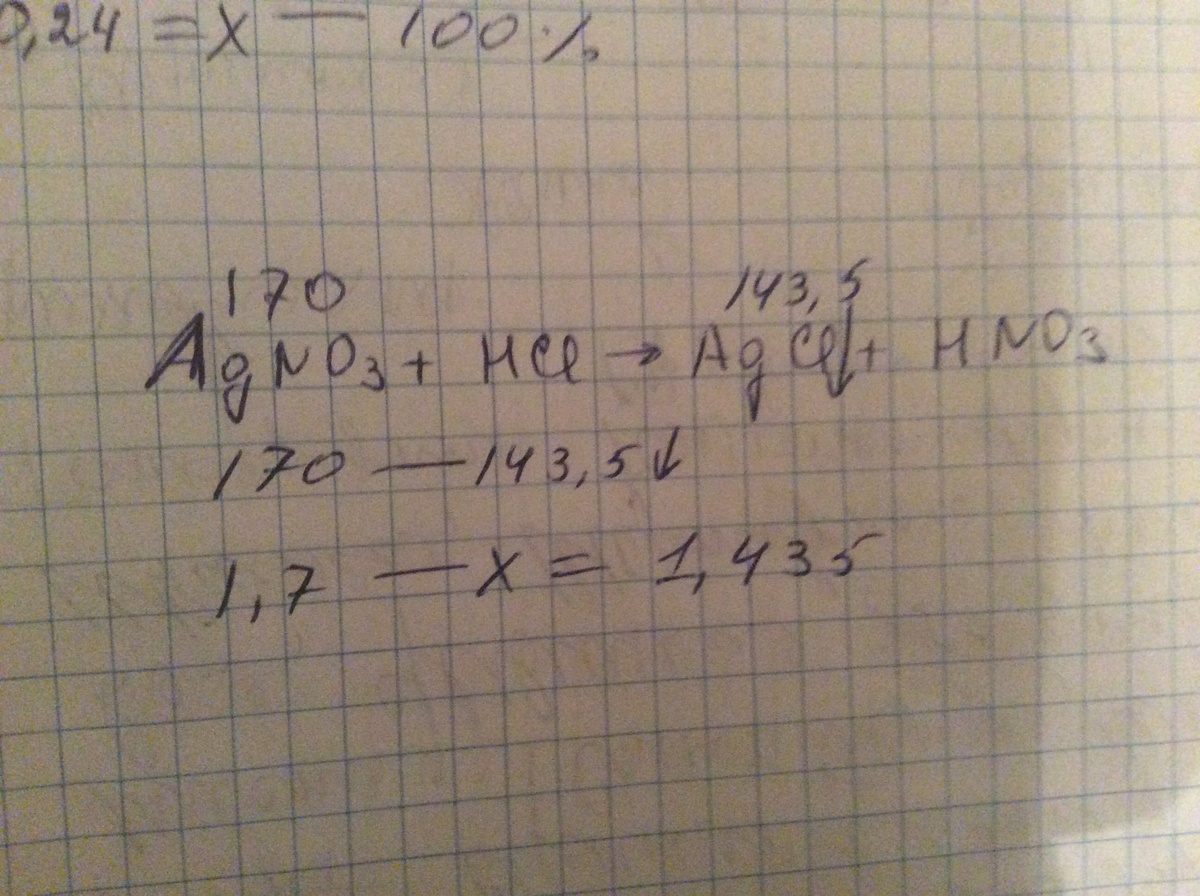 0,24 = x — 100%
170 143,5
AgNO3 + HCl → AgCl↓ + HNO3
170 — 143,5↓
1,7 — x = 1,435